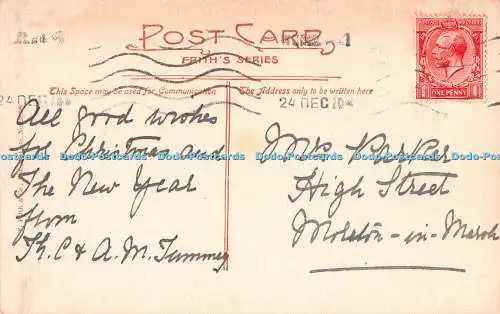 POST CARD
FRITH'S SERIES
This Space may be used for Communication
The Address only to be written here
24 DEC
24 DEC
POSTAGE REVENUE
ONE PENNY
All good wishes
for Christmas and
The New Year
from
Th. C & A. M. Tummey
Mrs Parker
High Street
Moreton-in-Marsh
Dodo-Postcards Dodo-Postcards Dodo-Postcards Dodo-Postcards